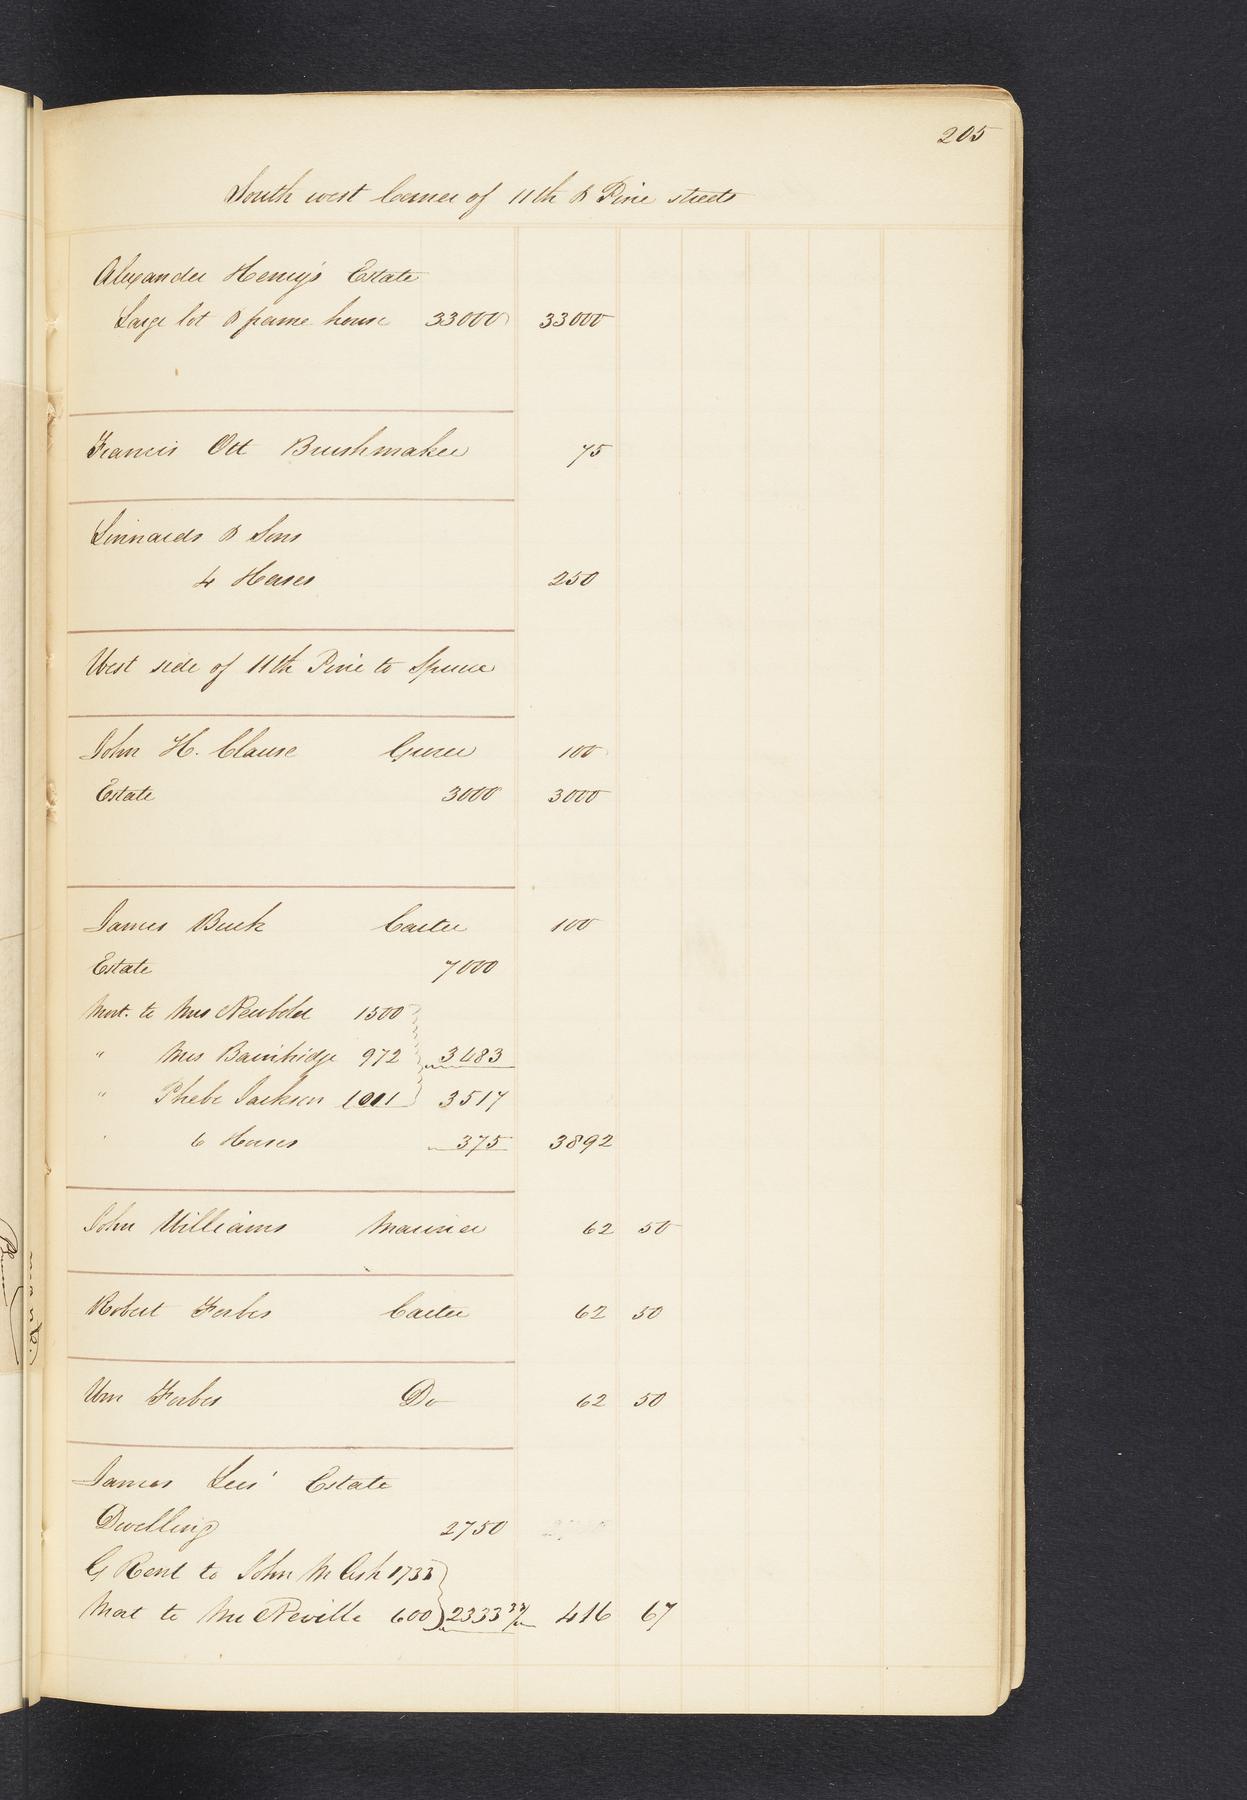 205
South west Corner of 11th & Pine streets
Alexander Henry's Estate
Large lot & frame house 33000 33000
Francis Ott Brushmaker 75
Linnards & Sons
4 Horses 250
West side of 11th Pine to Spruce
John H. Clause Grocer 100
Estate 3000 3000
James Buck Carter 100
Estate 7000
Mort. to Mrs Newbold 1500
" Mrs Bainbridge 972 3483
" Phebe Jackson 1011 3517
6 Horses 375 3892
John Williams Mariner 62 50
Robert Forbes Carter 62 50
Wm Forbes Do 62 50
James Lees' Estate
Dwelling 2750
G Rent to John M Ash 1733
Mort to Mrs Neville 600 2333 33/ 416 67